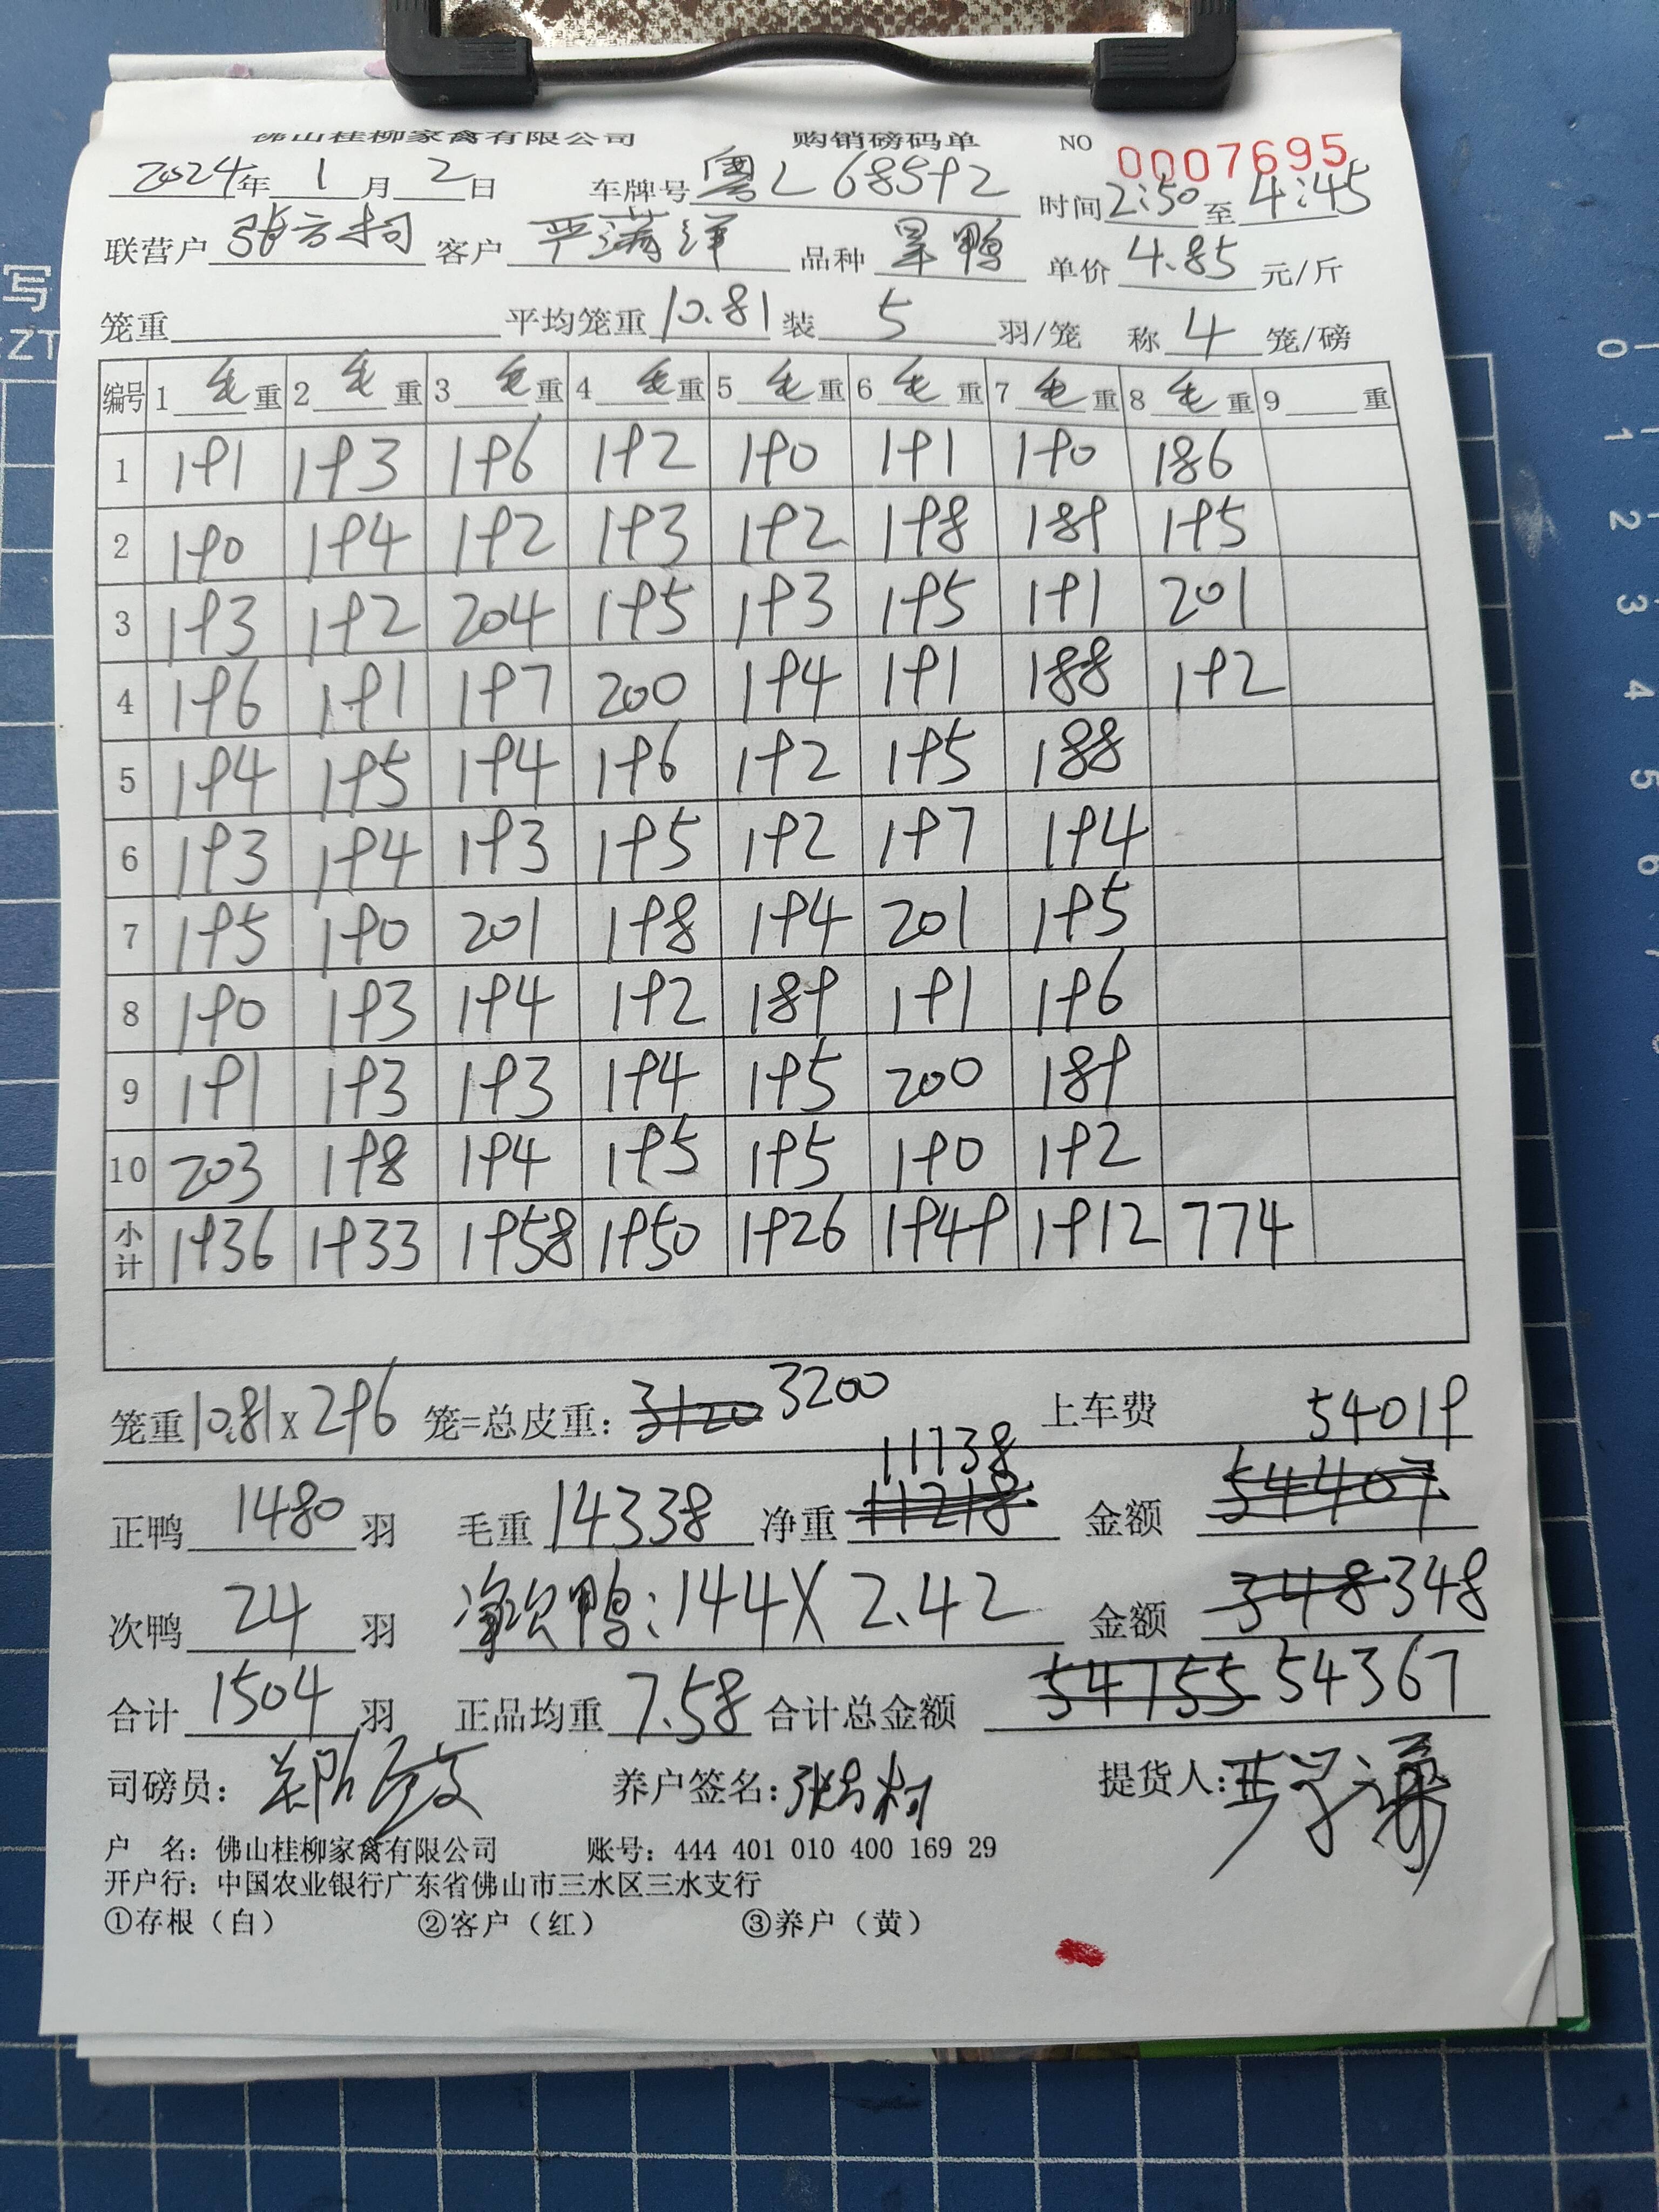 佛山桂柳家禽有限公司 购销磅码单 NO 0007695
2024年 1 月 2 日 车牌号 粤L68592 时间 2:50 至 4:45
联营户 张方柯 客户 严满洋 品种 旱鸭 单价 4.85 元/斤
笼重 平均笼重 10.81 装 5 羽/笼 称 4 笼/磅
编号 1 毛 重 2 毛 重 3 毛 重 4 毛 重 5 毛 重 6 毛 重 7 毛 重 8 毛 重 9 重
1 191 193 196 192 190 191 190 186
2 190 194 192 193 192 198 189 195
3 193 192 204 195 193 195 191 201
4 196 191 197 200 194 191 188 192
5 194 195 194 196 192 195 188
6 193 194 193 195 192 197 194
7 195 190 201 198 194 201 195
8 190 193 194 192 189 191 196
9 191 193 193 194 195 200 189
10 203 198 194 195 195 190 192
小计 1936 1933 1958 1950 1926 1949 1912 774
笼重 10.81 x 296 笼=总皮重: 3120 3200 上车费 54019
11138
正鸭 1480 羽 毛重 14338 净重 11218 金额 54407
次鸭 24 羽 净次鸭: 144 X 2.42 金额 348 348
合计 1504 羽 正品均重 7.58 合计总金额 54755 54367
司磅员: 养户签名: 提货人:
户 名: 佛山桂柳家禽有限公司 账号: 444 401 010 400 169 29
开户行: 中国农业银行广东省佛山市三水区三水支行
①存根（白） ②客户（红） ③养户（黄）
写
ZT
0
1
2
3
4
5
6
7